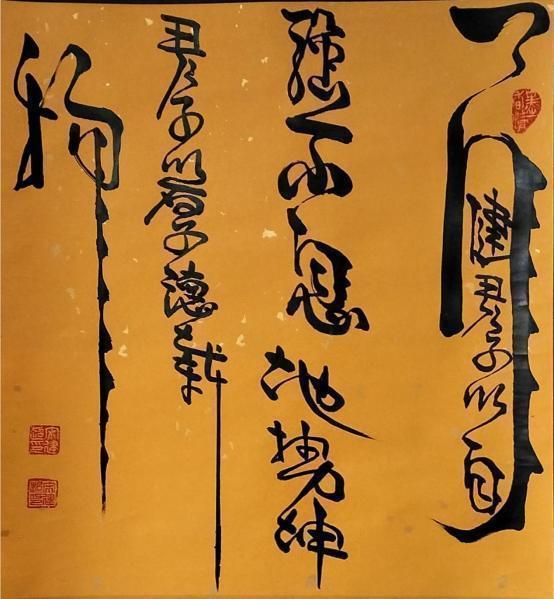 天行健君子以自
强不息地势坤
君子以厚德载
物